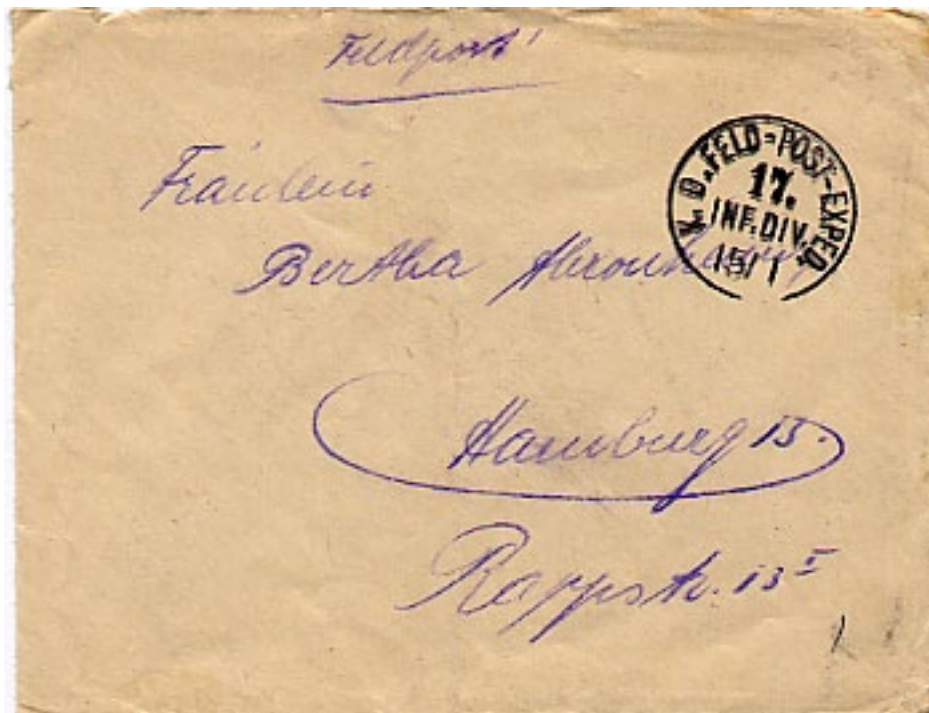 Feldpost!
K. D. FELD-POST-EXPED.
17.
INF. DIV.
15/1
Fräulein
Bertha
Hamburg 13.
Rappstr. 13 I